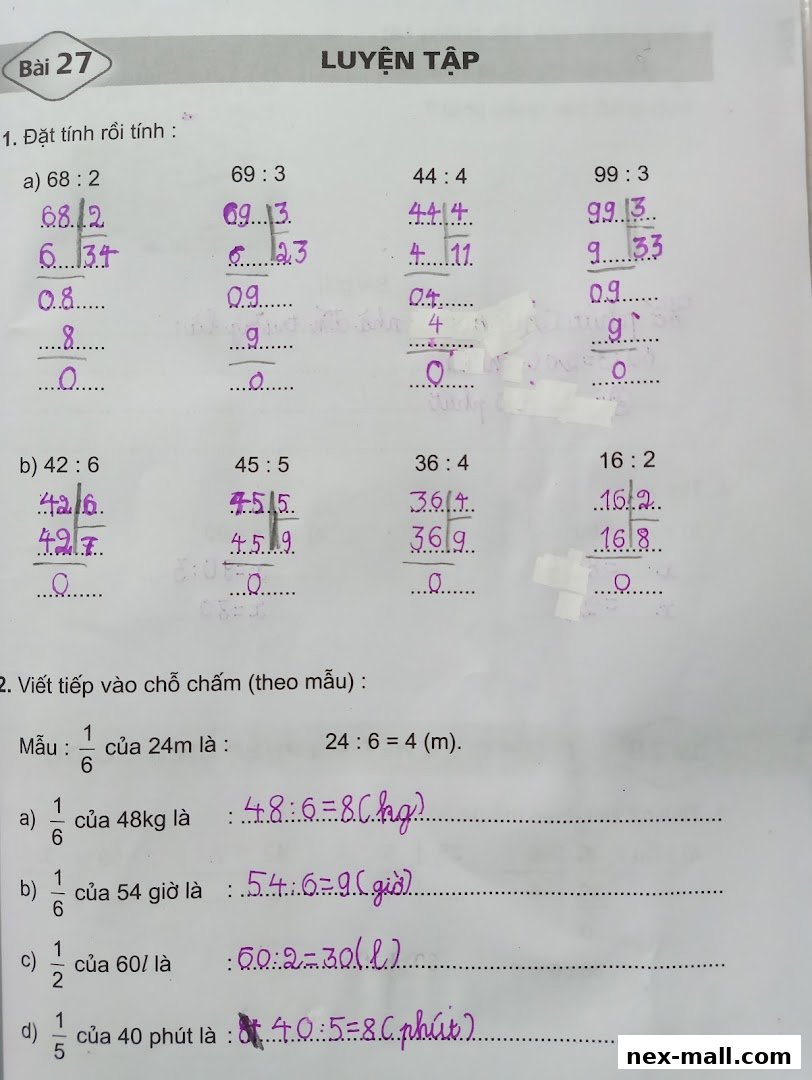 Bài 27 LUYỆN TẬP
1. Đặt tính rồi tính :
a) 68 : 2 69 : 3 44 : 4 99 : 3
68 2 69 3 44 4 99 3
6 34 6 23 4 11 9 33
08 09 04 09
8 9 4 9
0 0 0 0
b) 42 : 6 45 : 5 36 : 4 16 : 2
42 6 45 5 36 4 16 2
42 7 45 9 36 9 16 8
0 0 0 0
2. Viết tiếp vào chỗ chấm (theo mẫu) :
Mẫu : 1/6 của 24m là : 24 : 6 = 4 (m).
a) 1/6 của 48kg là : 48 : 6 = 8 (kg)
b) 1/6 của 54 giờ là : 54 : 6 = 9 (giờ)
c) 1/2 của 60l là : 60 : 2 = 30 (l)
d) 1/5 của 40 phút là : 40 : 5 = 8 (phút)
nex-mall.com